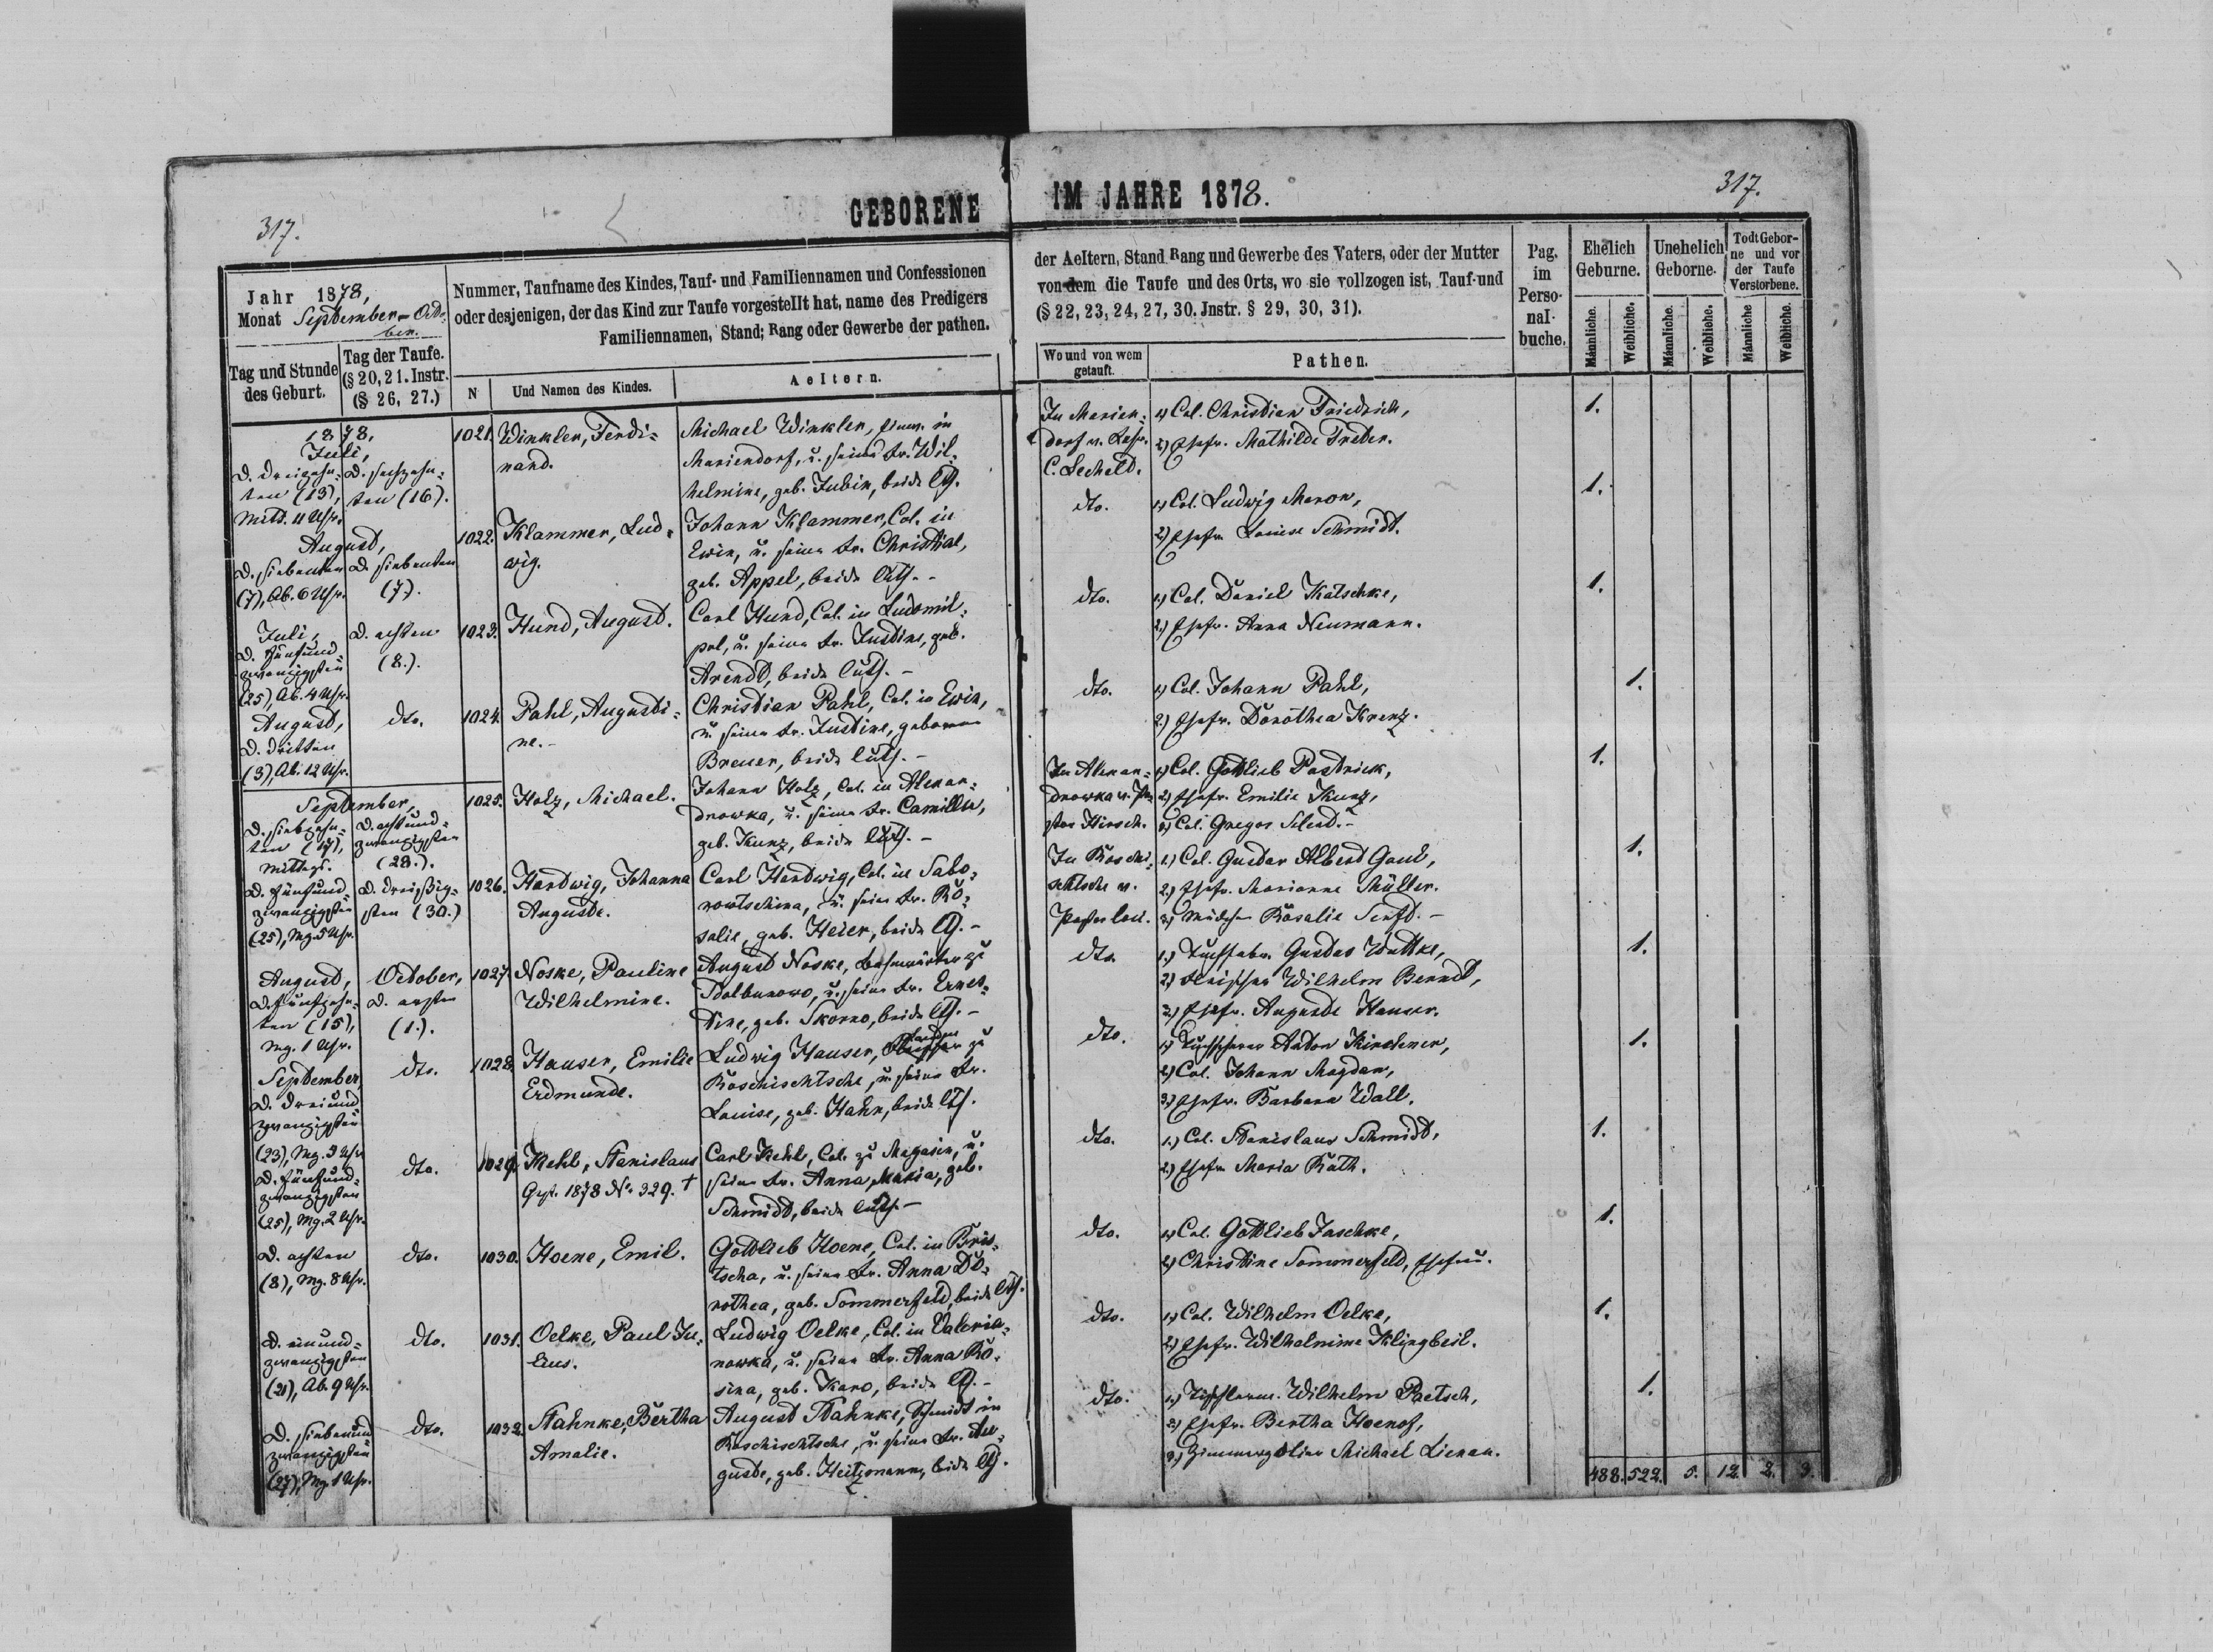 317.
GEBORENE
IM JAHRE 1878.
317.
Jahr 1878,
Monat September-Octo-
ber.
Tag und Stunde
des Geburt.
Tag der Taufe.
(§ 20, 21. Instr.
(§ 26, 27.)
Nummer, Taufname des Kindes, Tauf- und Familiennamen und Confessionen
oder desjenigen, der das Kind zur Taufe vorgestellt hat, name des Predigers
Familiennamen, Stand; Rang oder Gewerbe der pathen.
N
Und Namen des Kindes.
Aeltern.
der Aeltern, Stand Rang und Gewerbe des Vaters, oder der Mutter
von dem die Taufe und des Orts, wo sie vollzogen ist, Tauf-und
(§ 22, 23, 24, 27, 30. Jnstr. § 29, 30, 31).
Wo und von wem
getauft.
Pathen.
Pag.
im
Perso-
nal-
buche.
Ehelich
Geburne.
Unehelich
Geborne.
Todt Gebor-
ne und vor
der Taufe
Verstorbene.
Männliche.
Weibliche.
Männliche.
Weibliche.
Männliche
Weibliche.
1878,
Juli,
D. dreizehn-
ten (13),
Mitt. 11 Uhr.
D. sechzehn-
ten (16).
1021.
Winkler, Ferdi-
nand.
Michael Winkler, in
Mariendorf, u. seine Fr. Wil-
helmine, geb. Jubin, beide luth.
In Marien-
dorf v.
C. Lecheld.
1) Col. Christian Friedrich,
2) Ehefr. Mathilde Treder.
1.
August,
D. siebenten
(7), Ab. 6 Uhr.
D. siebenten
(7).
1022.
Klammer, Lud-
wig.
Johann Klammer, Col. in
Ewin, u. seine Fr. Christine,
geb. Appel, beide luth. -
dto.
1) Col. Ludwig Maron,
2) Ehefr. Louise Schmidt.
1.
Juli,
D. fünfund-
zwanzigsten
(25), Ab. 4 Uhr.
D. achten
(8).
1023.
Hund, August.
Carl Hund, Col. in Ludomil-
pol, u. seine Fr. Justine, geb.
Arendt, beide luth. -
dto.
1) Col. Daniel Katschke,
2) Ehefr. Anna Neumann.
1.
August,
D. dritten
(3), Ab. 12 Uhr.
dto.
1024.
Pahl, Augusti-
ne. -
Christian Pahl, Col. in Ewin,
u. seine Fr. Justine, geborene
Breuer, beide luth. -
dto.
1) Col. Johann Pahl,
2) Ehefr. Dorothea Krenz.
1.
September,
D. siebzehn-
ten (17),
Mittags.
D. achtund-
zwanzigsten
(28.).
1025.
Holz, Michael.
Johann Holz, Col. in Alexan-
drowka, u. seine Fr. Camilla,
geb. Kunz, beide luth. -
In Alexan-
drowka v. Pa-
stor Hirsch.
1) Col. Gottlieb Pastrick,
2) Ehefr. Emilie Kunz,
3) Col. Gregor
1.
D. fünfund-
zwanzigsten
(25), Mg. 5 Uhr.
D. dreißig-
sten (30.)
1026.
Hardwig, Johanna
Auguste.
Carl Hardwig, Col. in Sabo-
rowtschina, u. seine Fr. Ro-
salie, geb. Heier, beide luth. -
In Roschi-
schtsche v.
Pastor
1.) Col. Gustav Albert Gaul,
2.) Ehefr. Marianne Müller.
3) Mädchen Rosalie Senft. -
1.
August,
D. fünfzehn-
ten (15),
Mg. 1 Uhr.
October,
D. ersten
(1.).
1027.
Noske, Pauline
Wilhelmine.
August Noske, Bahnwärter zu
Tolbunowo, u. seine Fr. Ernes-
tine, geb. Skorno, beide luth. -
dto.
1.) Tuchfabr. Gustav Wuttke,
2) Fleischer Wilhelm Berndt,
3) Ehefr. Auguste Hauser.
1.
September
D. dreiund
zwanzigsten
(23), Mg. 3 Uhr.
dto.
1028.
Hauser, Emilie
Erdmunde.
Ludwig Hauser, zu
Roschischtsche, u. seine Fr.
Louise, geb. Hahn, beide luth.
dto.
1) Tuchscherer Anton Kirchner,
2) Col. Johann Magdan,
3) Ehefr. Barbara Wall.
1.
D. fünfund-
zwanzigsten
(25), Mg. 2 Uhr.
dto.
1029.
Kehl, Stanislaus
Gest. 1878 No. 329. †
Carl Kehl, Col. zu Magasin, u.
seine Fr. Anna, Maria, geb.
Schmidt, beide luth. -
dto.
1.) Col. Stanislaus Schmidt,
2) Ehefr. Maria Rath.
1.
D. achten
(8), Mg. 8 Uhr.
dto.
1030.
Hoene, Emil.
Gottlieb Hoene, Col. in Bris-
tscha, u. seine Fr. Anna Do-
rothea, geb. Sommerfeld, beide luth.
dto.
1) Col. Gottlieb Jaschke,
2) Christine Sommerfeld, Ehefrau.
1.
D. einund-
zwanzigsten
(21), Ab. 9 Uhr.
dto.
1031.
Oelke, Paul Ju-
lius.
Ludwig Oelke, Col. in Valeria-
nowka, u. seine Fr. Anna Ro-
sina, geb. Karo, beide luth. -
dto.
1) Col. Wilhelm Oelke,
2) Ehefr. Wilhelmine Klingbeil.
1.
D. siebenund
zwanzigsten
(27), Mg. 1 Uhr.
dto.
1032.
Stahnke, Bertha
Amalie.
August Stahnke, Schmidt in
Roschischtsche, u. seine Fr. Au-
guste, geb. Heitzmann, beide luth.
dto.
1.) Tischlerm. Wilhelm Paetsch,
2) Ehefr. Bertha
3) Michael Lienau.
1.
488. 522. 5. 12. 2. 9.